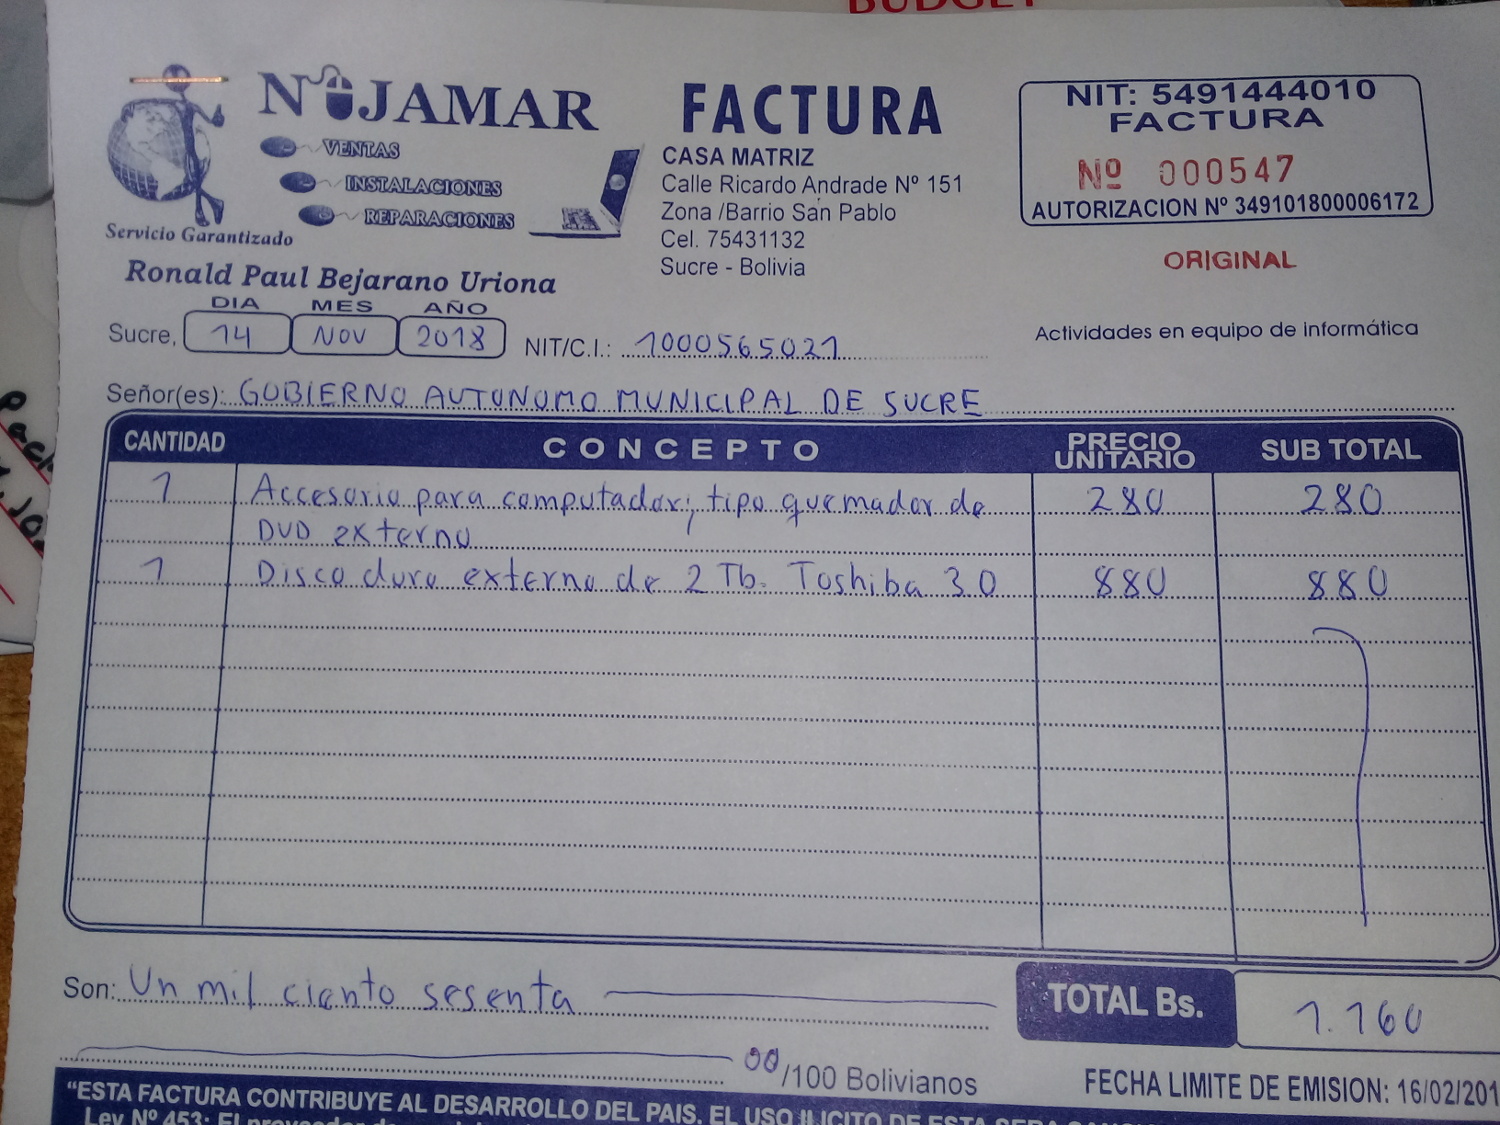 BUDGET
NOJAMAR
VENTAS
INSTALACIONES
REPARACIONES
Servicio Garantizado
Ronald Paul Bejarano Uriona
FACTURA
CASA MATRIZ
Calle Ricardo Andrade Nº 151
Zona /Barrio San Pablo
Cel. 75431132
Sucre - Bolivia
NIT: 5491444010
FACTURA
Nº 000547
AUTORIZACION Nº 349101800006172
ORIGINAL
Actividades en equipo de informática
DIA MES AÑO
Sucre, 14 NOV 2018 NIT/C.I.: 1000565021
Señor(es): GOBIERNO AUTONOMO MUNICIPAL DE SUCRE
CANTIDAD CONCEPTO PRECIO UNITARIO SUB TOTAL
1 Accesorio para computador; tipo quemador de 280 280
DVD externo
1 Disco duro externo de 2 Tb. Toshiba 3.0 880 880
Son: Un mil ciento sesenta
TOTAL Bs. 1.160
00/100 Bolivianos
FECHA LIMITE DE EMISION: 16/02/201
"ESTA FACTURA CONTRIBUYE AL DESARROLLO DEL PAIS. EL USO ILICITO DE ESTA SERA
Ley Nº 453: El